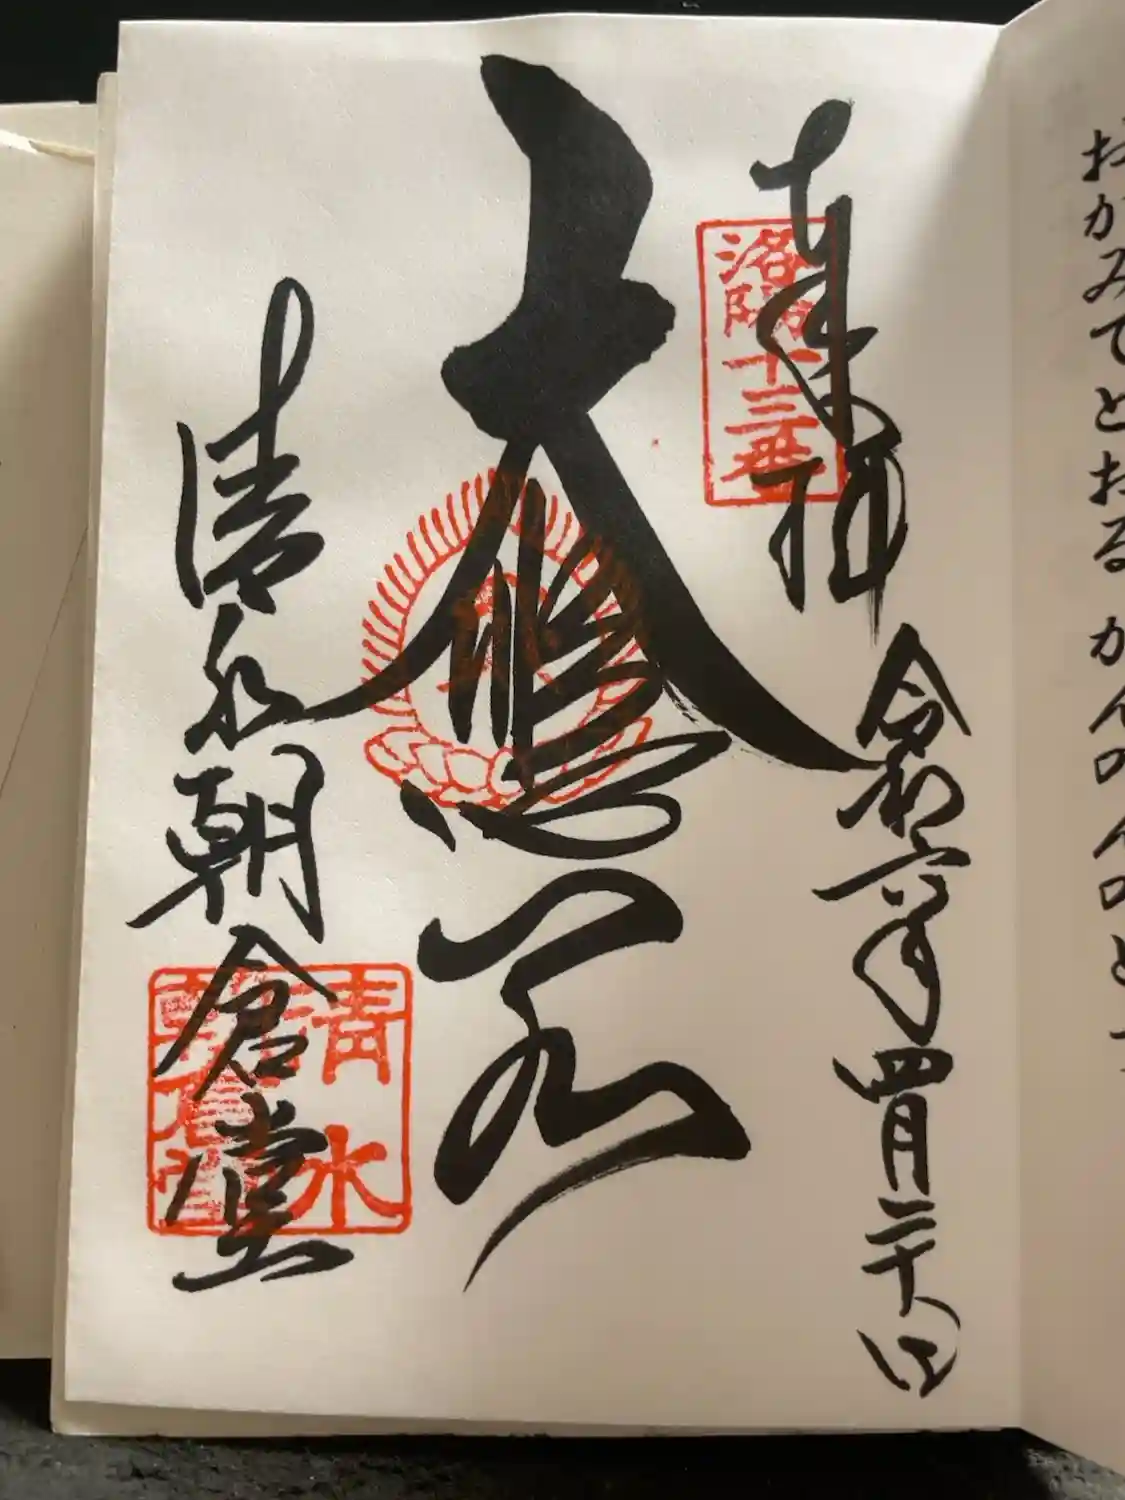 おがみてとおる かんのんの
奉拝
洛陽十三番
令和六年四月二十八日
大悲閣
清水朝倉堂
清水
朝倉堂